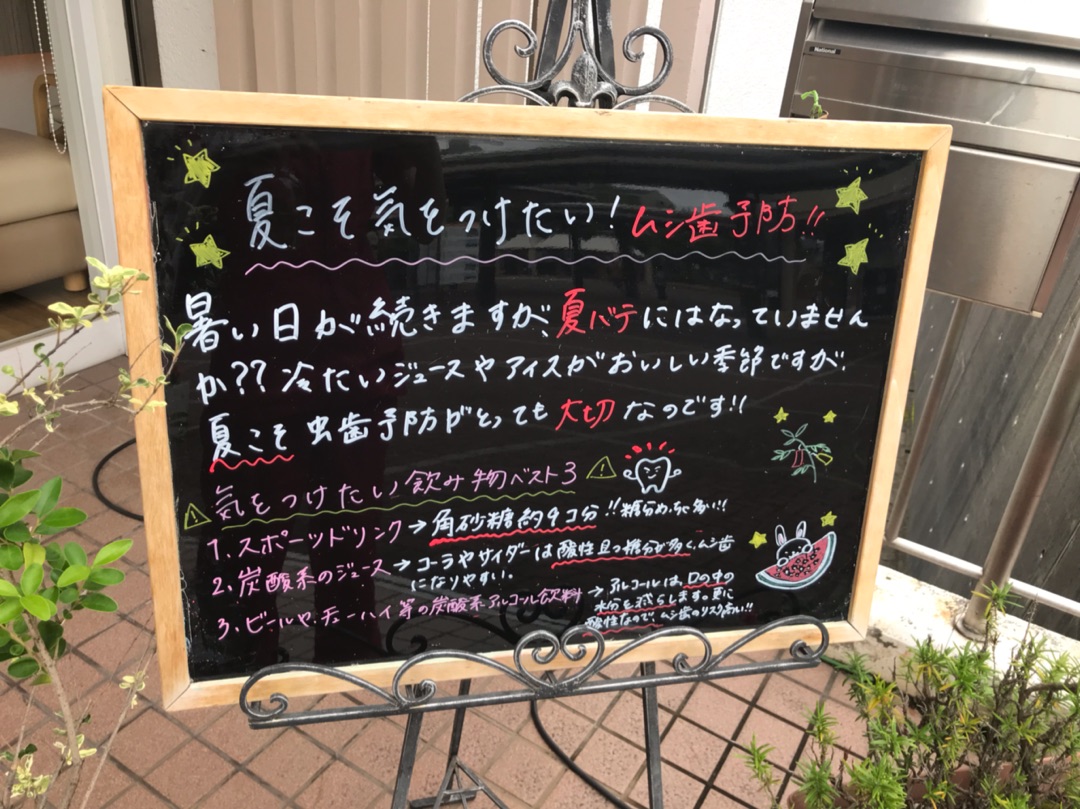 National
夏こそ気をつけたい！ムシ歯予防!!
暑い日が続きますが、夏バテにはなっていません
か??冷たいジュースやアイスがおいしい季節ですが、
夏こそ虫歯予防がとっても大切なのです!!
⚠気をつけたい飲み物ベスト3⚠
1.スポーツドリンク→角砂糖約9コ分!!糖分めっちゃ多い!!
2.炭酸系のジュース→コーラやサイダーは酸性且つ糖分が多くムシ歯
になりやすい。
3.ビールや、チューハイ等の炭酸系アルコール飲料→アルコールは、口の中の
水分を減らします。更に
酸性なので、ムシ歯のリスク高い!!